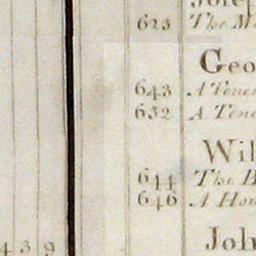 623 The M
Geo
643 A Tene
632 A Tene
Wil
644 The B
646 A Hou
439 Joh